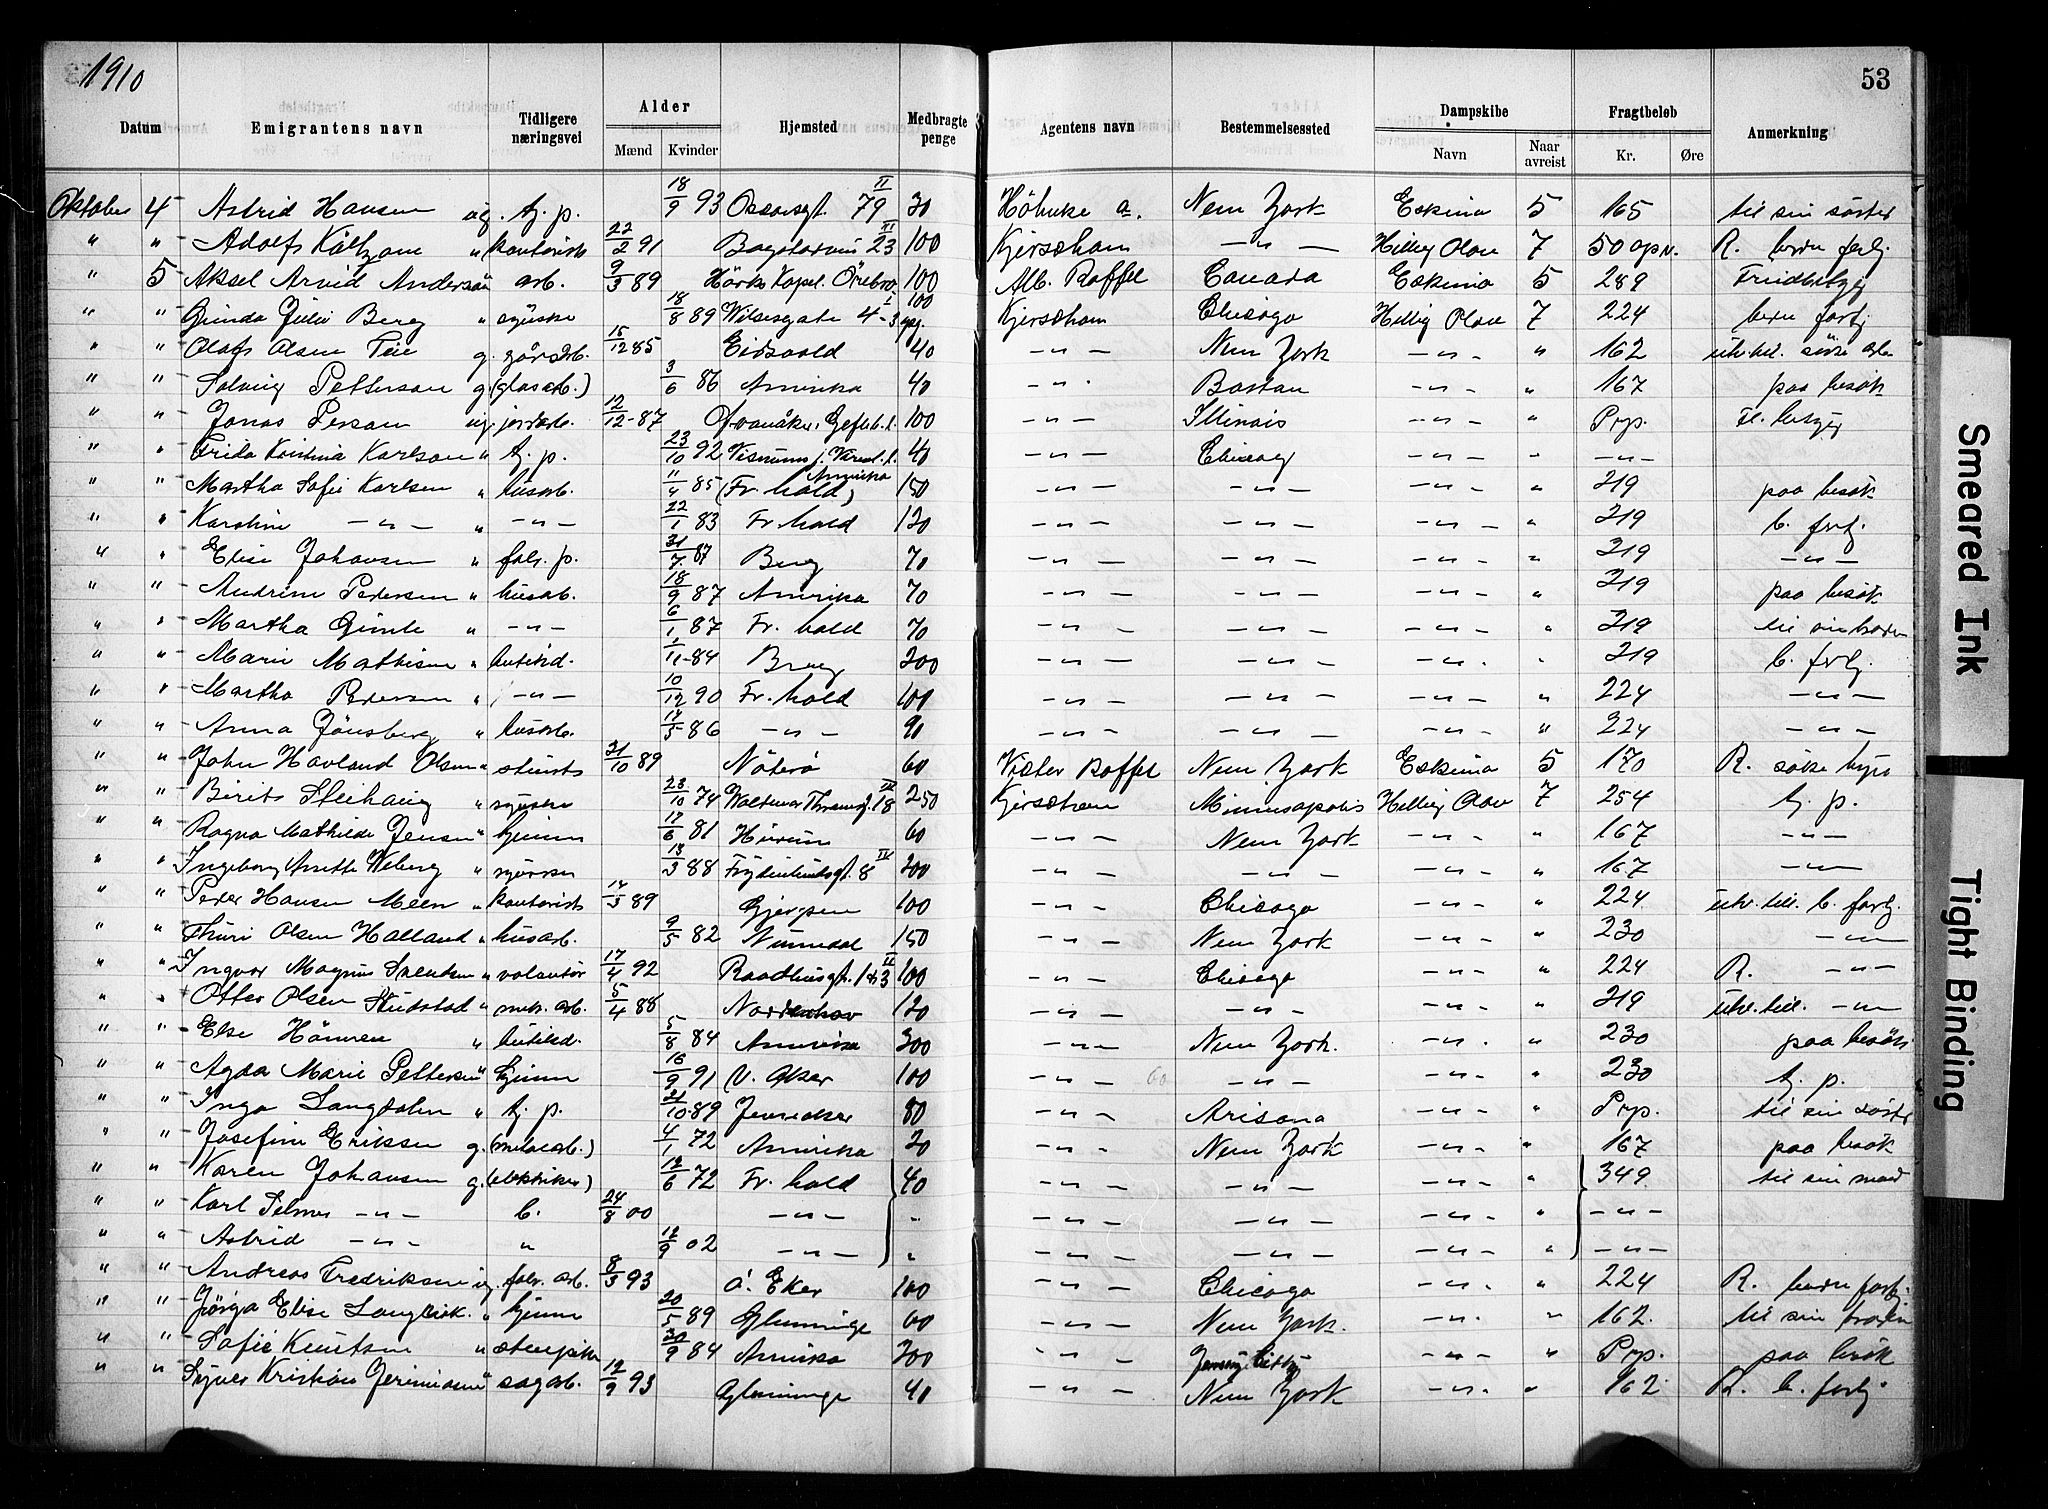 1910
53
Datum | Emigrantens navn | Tidligere næringsvei | Alder Mænd | Kvinder | Hjemsted | Medbragte penge | Agentens navn | Bestemmelsessted | Dampskibe Navn | Naar avreist | Fragtbeløb Kr. | Øre | Anmerkning
Oktober 4 Astrid Hansen ug. tj. p. 18/9 93 Oscarsgt. 79 II 30 Höhnke a. New York Eskimo 5 165 til sin søster
" " Adolf " kontorist 22/2 91 23 100 Kjerschow — " — Hellig Olav 7 50 R.
" 5 Aksel Arvid Anderson arb. 9/3 89 Örebro 100 Alb. Boffel Canada Eskimo 5 289
" " Gunda Julie Berg " syerske 18/8 89 Wilsesgate 4 I 100 Kjerschow Chicago Hellig Olav 7 224 bedre fortj
" " Olaf Olsen g. gårdsarb. 15/12 85 Eidsvold 40 — " — New York — " — " 162
" " Solveig Petterson g. (glasarb.) 3/6 86 Amerika 40 — " Boston — " — " 167 paa besøk
" " Jonas Person ug. jordarb. 12/12 - 87 100 — " — Illinois — " — " Prp.
" " Frida Kristina Karlson " tj. p. 23/10 92 40 — " — Chicago — " — " — " —
" " Martha Sofie Karlsen " husarb. 11/4 85 (Fr. hald) Amerika 150 — " — — " — — " — " 219 paa besøk
" " Karoline — " — " — " — 22/1 83 Fr. hald 120 — " — — " — — " — " 219 b. fortj.
" " Elise Johansen " fabr. p. 31/7 87 Berg 70 — " — — " — — " — " 219 — " —
" " Andrine Pedersen " husarb. 18/9 87 Amerika 70 — " — — " — — " — " 219 paa besøk
" " Martha Gimle " — " — 6/1 87 Fr. hald 70 — " — — " — — " — " 219 til sin broder
" " Marie Mathisen " butikd. 1/11 - 84 Berg 200 — " — — " — — " — " 219 b. fortj.
" " Martha Pedersen " — " — 10/12 90 Fr. hald 100 — " — — " — — " — " 224 — " —
" " Anna Jönsberg " husarb. 86 — " — 90 — " — — " — — " — " 224 — " —
" " John Havland Olsen " stuert 31/10 89 Nöterö 60 Victor Boffel New York Eskimo 5 170 R. søke hyre
" " Birit " syerske 23/10 74 18 250 Kjerschow Minneapolis Hellig Olav 7 254 tj. p.
" " Ragna Mathilde Jensen " hjemme 17/6 81 Hurum 60 — " — New York — " — " 167 — " —
" " Ingeborg Anette Wiberg " syerske 13/3 88 8 IV 200 — " — — " — — " — " 167 — " —
" " Peder Hansen Meen " kontorist 89 Gjerpen 100 — " — Chicago — " — " 224 utv. till. b. fortj.
" " Thuri Olsen Halland " husarb. 9/5 82 Numedal 150 — " — New York — " — " 230 — " —
" " Ingvar Magnus Svendsen " volontør 17/4 92 Raadhusgt. II 100 — " — Chicago — " — " 224 R. — " —
" " Otter Olsen " 5/4 88 Norderhov 120 — " — — " — — " — " 219 utv. till. — " —
" " Else Hönnen " butikd. 5/8 84 Amerika 300 — " — New York. — " — " 230 paa besøk
" " Agda Marie Pettersen " hjemme 16/9 91 V. Aker 100 — " — 60 — " — — " — " 230 tj. p.
" " Inga Langdalen " tj. p. 21/10 89 Jevnaker 80 — " — Arisona — " — " Prp. til sin søster
" " Josefine Eriksen g. 4/1 72 Amerika 20 — " — New York — " — " 167 paa besøk
" " Karen Johansen g. (elektriker) 12/6 72 Fr. hald 40 — " — — " — — " — " 349 til sin mand
" " Karl Selmer — " — b. 24/8 00 — " — " — " — — " — — " — " — " —
" " Astrid — " — " 12/9 02 — " — " — " — — " — — " — " — " —
" " Andreas Fredriksen ug. fabr. arb. 93 Ö. Eker 100 — " — Chicago — " — " 224 R. bedre fortj.
" " Elise " hjemme 20/5 89 Glemminge 60 — " — New York. — " — " 162. til sin broder
" " Sofie Knutsen " 30/9 84 Amerika 300 — " — Jersey City — " — " Prp. paa besøk
" " Kristian " sagarb. 12/9 93 Glemminge 40 — " — New York — " — " 162 R. b. fortj
Smeared Ink
Tight Binding